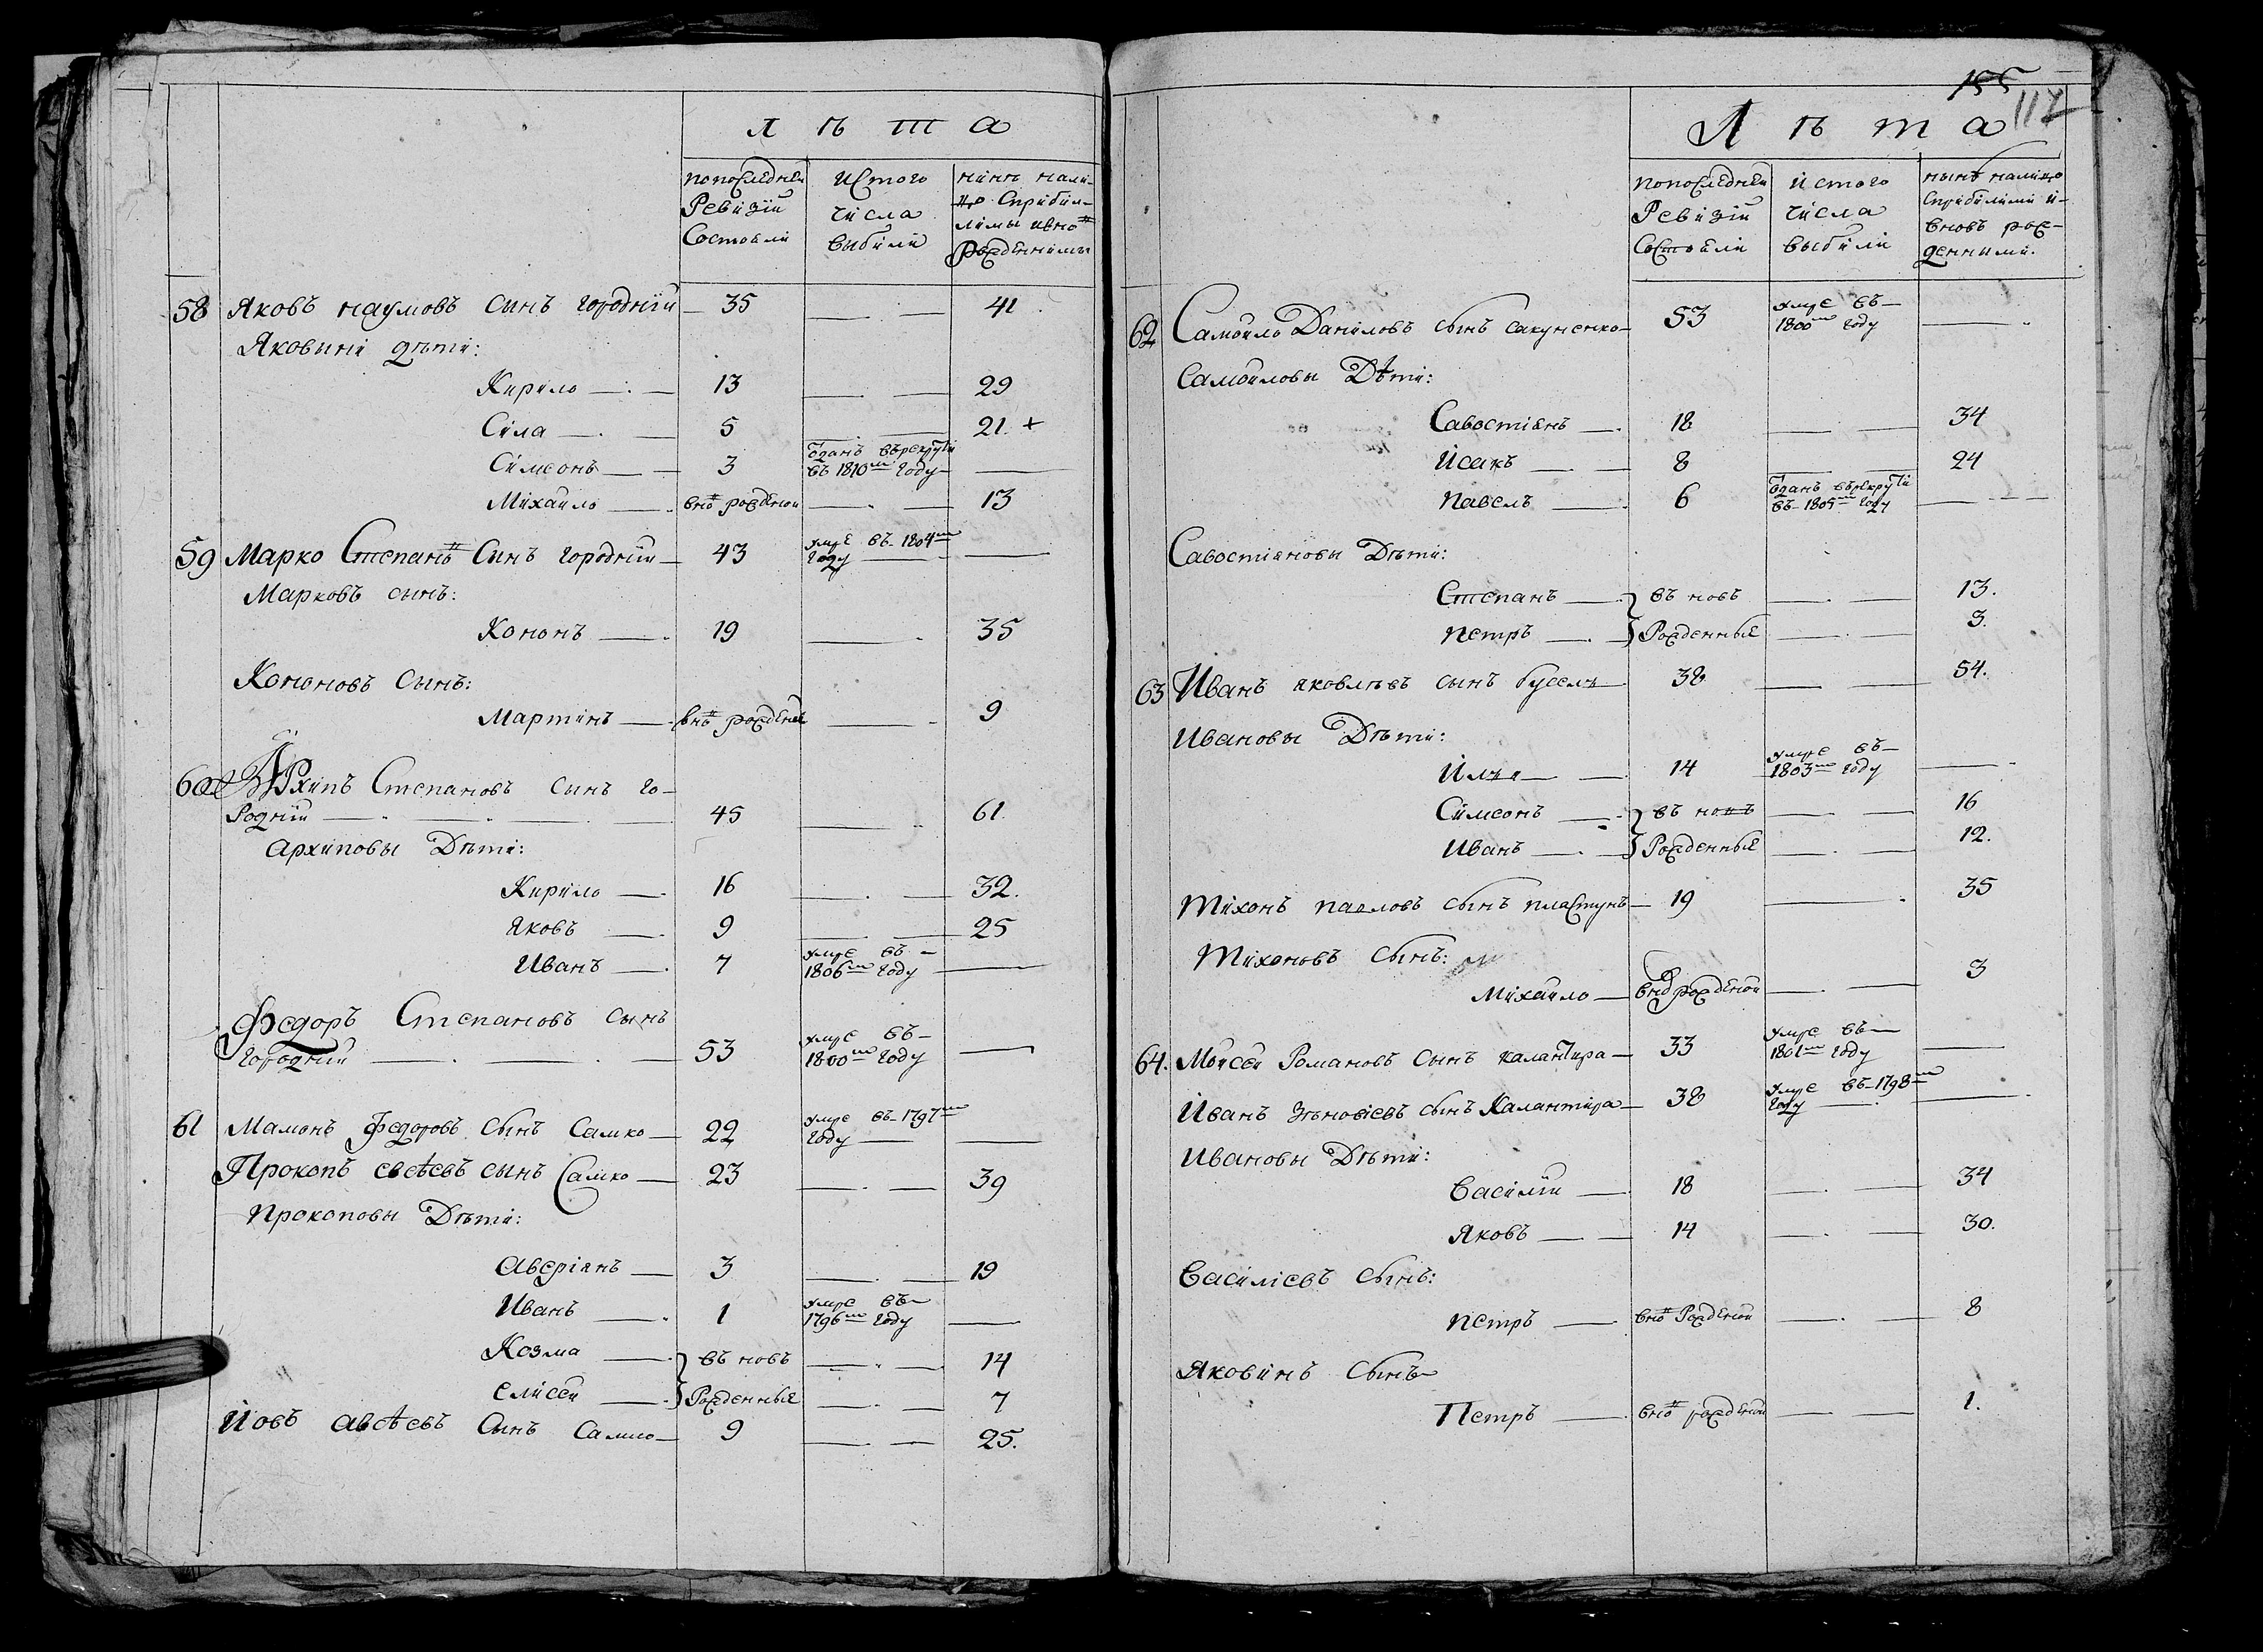 Л ѣ т а
попослѣдней Ревизіи Состояли
Истого числа выбили
нинѣ нали-
цо Сприбил-
лимы ивно
рожденнимы
58 Яковъ наумовъ сынъ городній 35 41
Яковыни дѣти:
Кирило 13 29
Сила 5 21. +
Симеонъ 3 Отданъ върекруты въ 1810м году
Михайло внов рожденой 13
59 Марко Степанов Сынъ городній 43 умре въ 1804м году
Марковъ сынъ:
Кононъ 19 35
Кононовъ Сынъ:
Мартинъ внов рожденой 9
60 Архипъ Степановъ сынъ го-
родній 45 61.
Архиповы Дѣти:
Кирило 16 32.
Яковъ 9 25
Иванъ 7 умре въ 1806м году
Федоръ Степановъ сынъ
городній 53 умре въ 1800м году
61 Мамонъ федоровъ сынъ Самко 22 умре въ 1797м году
Прокопъ евсѣевъ сынъ Самко 23 39
Прокоповы Дѣти:
Аверіянъ 3 19
Иванъ 1 умре въ 1796м году
Козма въ новъ 14
Елисей Рожденные 7
Йовъ Авсѣевъ Сынъ Самко 9 25.
155
117
Л ѣ т а
попослѣдней Ревизіи Состояли
Истого числа выбили
нынѣ налицо
сприбилими и
вновъ рож-
денними.
62 Самойло Даниловъ сынъ сакуненко 53 умре въ 1800м году
Самойловы Дѣти:
Савостіянъ 18 34
Исакъ 8 24
Павелъ 6 Отданъ върекруты въ 1805м году
Савостіяновы Дѣти:
Степанъ въ новъ 13.
Петръ Рожденные 3.
63 Иванъ яковлѣвъ сынъ буселъ 38 54.
Ивановы Дѣти:
Илья 14 умре въ 1803м году
Симеонъ въ новъ 16
Иванъ Рожденные 12.
Тихонъ павловъ сынъ пластунъ 19 35
Тихоновъ Сынъ:
Михайло внов рожденой 3
64. Мойсей Романовъ Сынъ калантира 33 умре въ 1801м году
Иванъ Зѣновіевъ сынъ Калантира 38 умре въ 1798м году
Ивановы Дѣти:
Василій 18 34
Яковъ 14 30.
Василіевъ Сынъ:
Петръ внов Рожденой 8
Яковинъ Сынъ
Петръ внов рожденой 1.